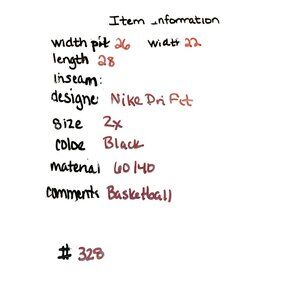 Item Information
width pit 26 width 22
length 28
inseam:
designe Nike Dri Fit
size 2x
color Black
material 60/40
comments Basketball
# 328